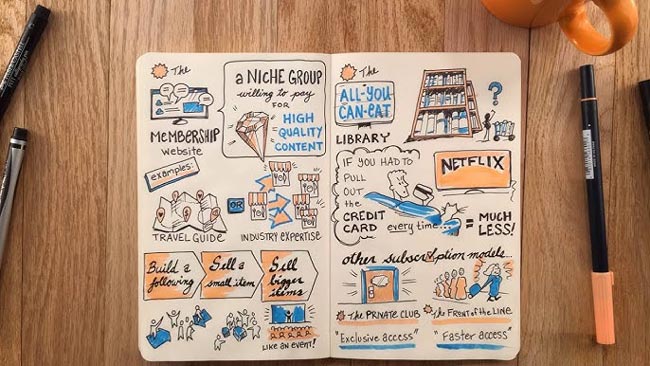 The
MEMBERSHIP
website
a NICHE GROUP
willing to pay
FOR
HIGH
QUALITY
CONTENT
examples:
TRAVEL GUIDE
OR
INDUSTRY EXPERTISE
Build a
following
Sell a
small item
Sell
bigger
items
LIKE AN EVENT!
The
ALL-YOU
CAN-EAT
LIBRARY
?
IF YOU HAD TO
PULL
OUT
the
CREDIT
CARD every time...
NETFLIX
= MUCH
LESS!
other subscription models...
The PRIVATE CLUB
"Exclusive access"
The FRONT of the LINE
"Faster access"